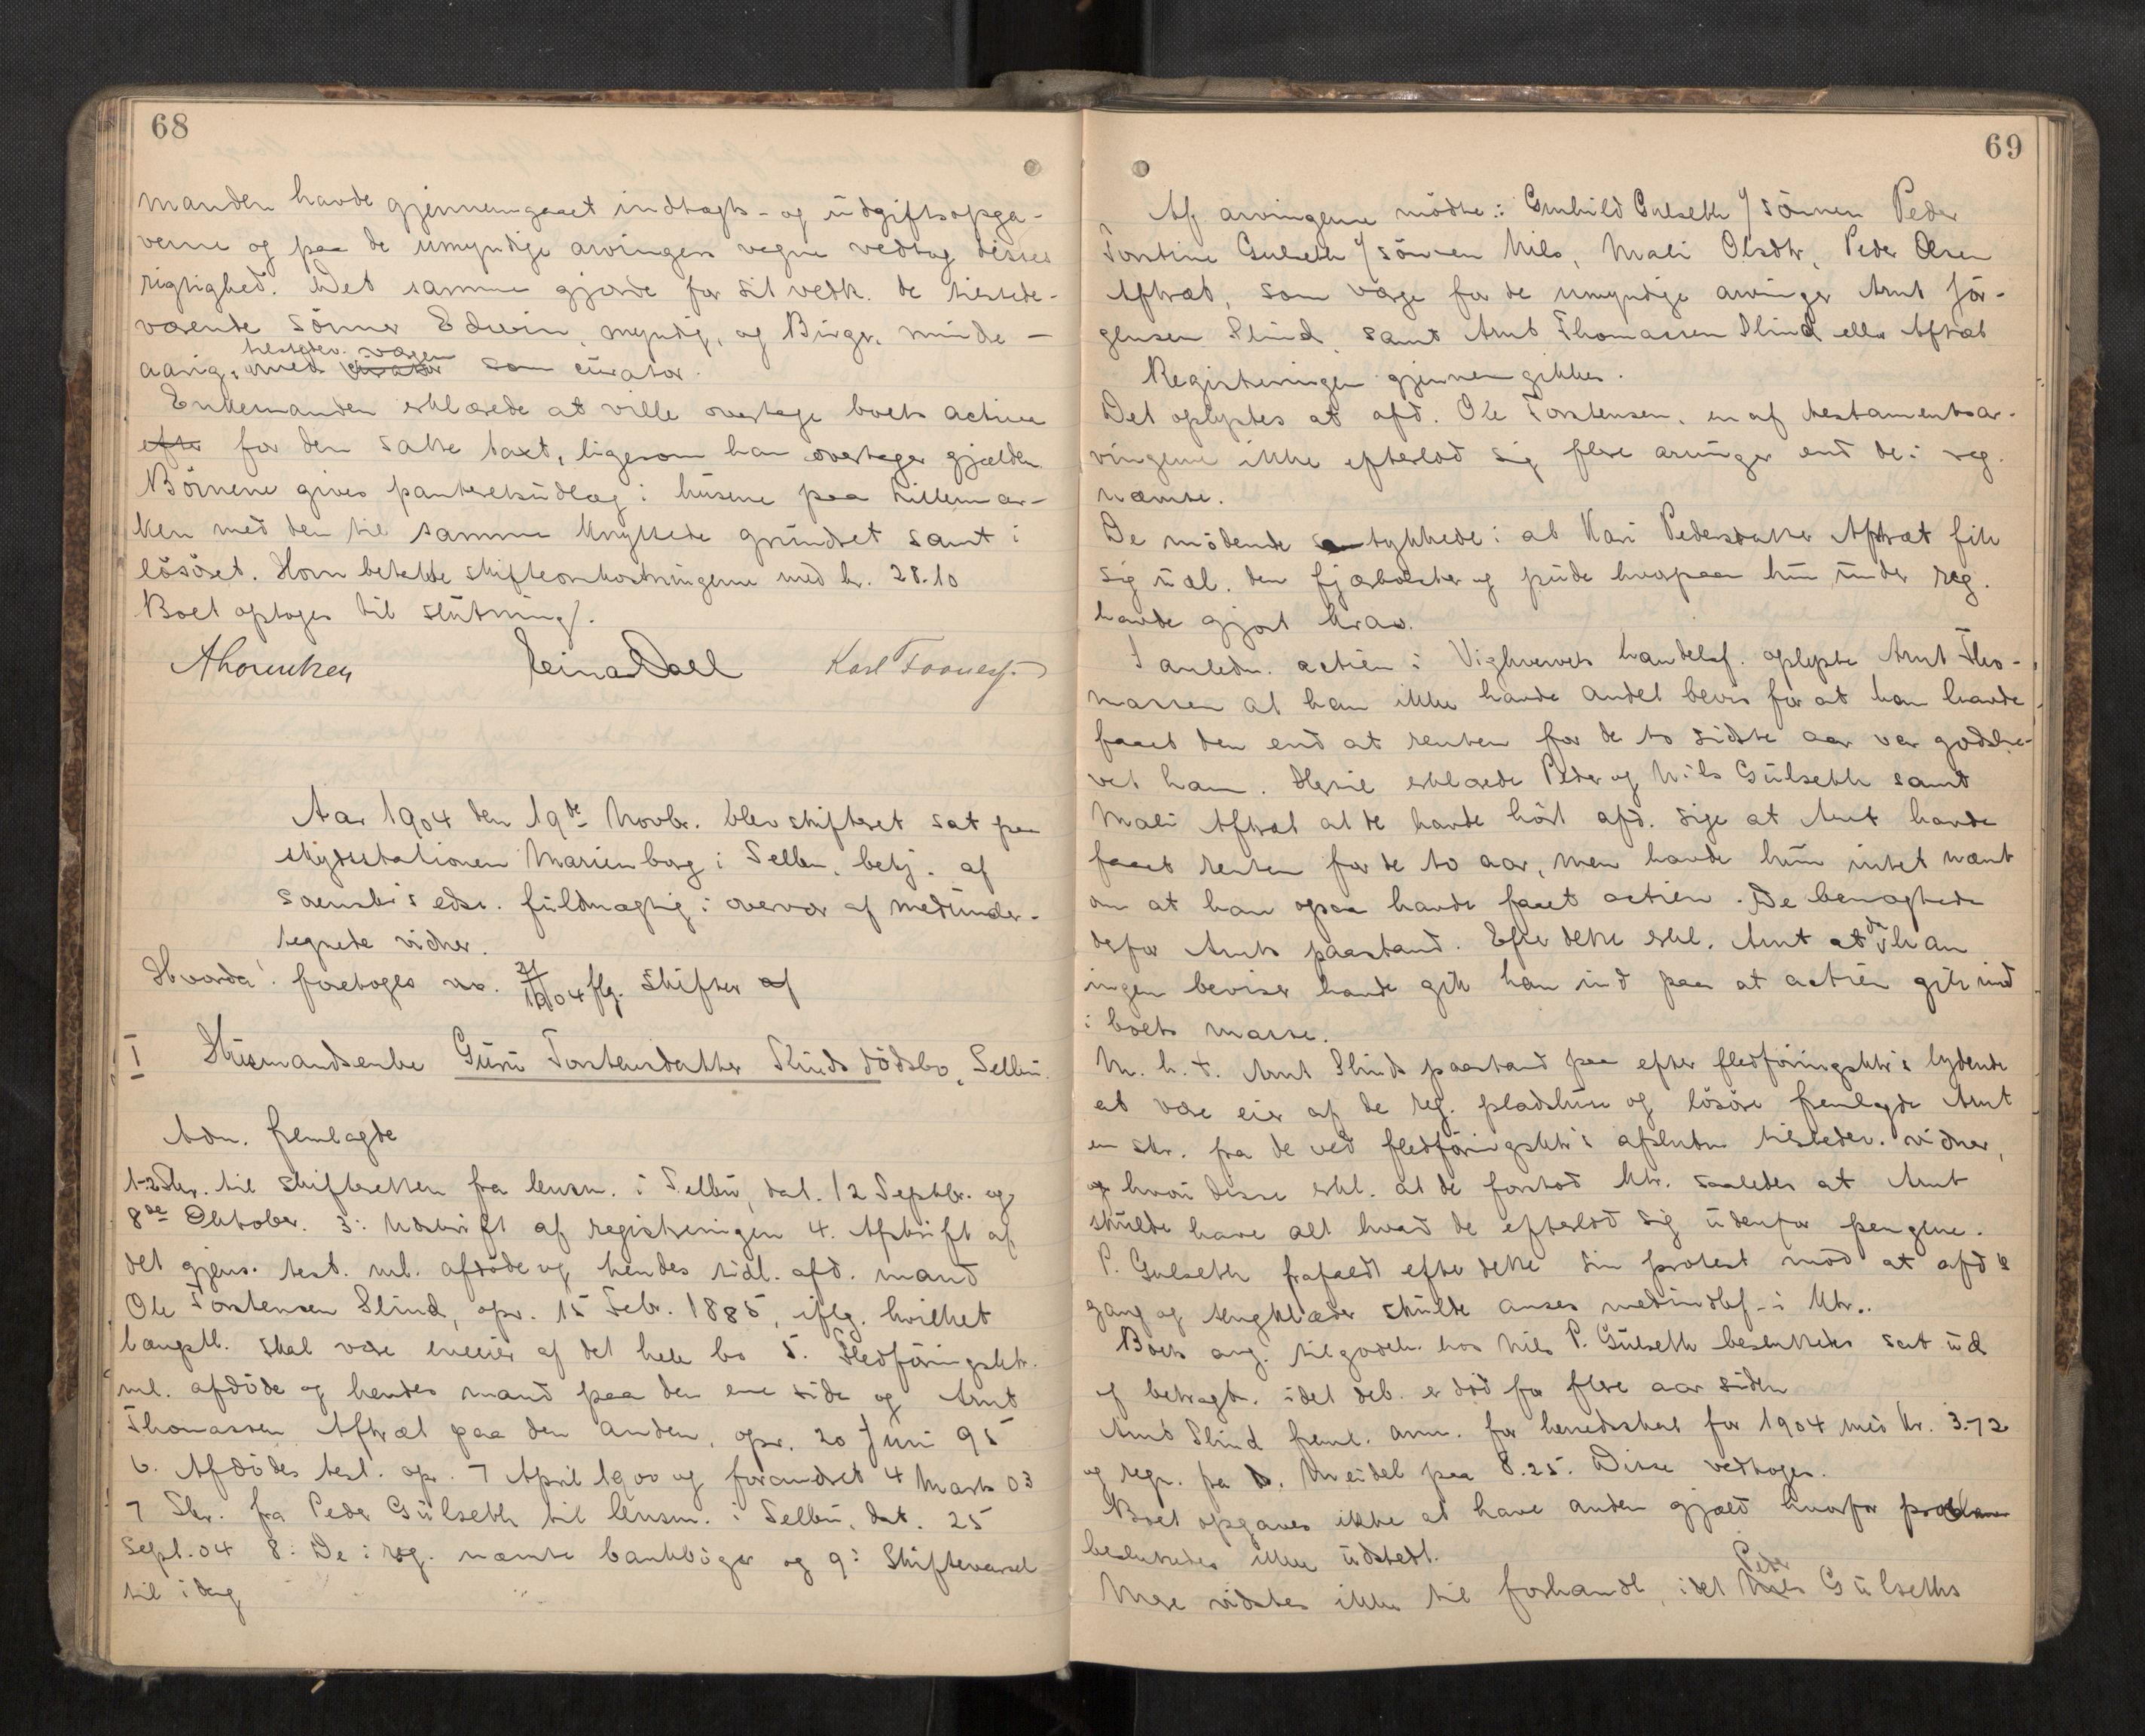 68
manden havde gjennemgaaet indtægts- og üdgiftsopga-
verne og paa de umyndige arvingers vegne vedtog disses
rigtighed. Det samme gjorde for sit vedk. de tilstede-
værende sönner Edwin, myndig, og Birger, minde-
tilstedev. værgen
aarig, med curator som cürator.
Enkemanden erklærede at ville overtage boets activa
efter for den satte taxt, ligesom han overtager gjælden.
Börnene gives panteretsüdlæg i hüsene paa Lillemar-
ken med den til samme knyttede grundret samt i
lösöret. Han betalte skifteomkostningerne med kr. 28.10
Boet optoges til slütning.
Karl
Aar 1904 den 19de Novbr. blev skifteret sat paa
skydsstationen Marienborg i Selbu, betj. af
sorenskr's edsv. füldmægtig i overvær af medünder-
tegnede vidner.
Hvorda: foretoges no. 21/1904 flg. skifter af
I Hüsmandsenke Guru Torstensdatter Slinds dödsbo, Selbu.
Adm. fremlagde
1-2 Skr. til skifteretten fra lensm. i Selbü, dat. 12 Septbr. og
8de Oktober. 3: Udskrift af registreringen 4. Afskrift af
det gjens. test. ml. afdöde og hendes tidl. afd. mand
Ole Torstensen Slind, opr. 15 Febr. 1885, iflg. hvilket
længstl. skal være eneeier af det hele bo 5. Fledföringsktr.
ml. afdöde og hendes mand paa den ene side og Arnt
Thomassen Aftræt paa den anden, opr. 20 Juni 95
6. Afdödes test. opr. 7 April 1900 og forandret 4 Marts 03
7 Skr. fra Peder Gülseth til lensm. i Selbü, dat. 25
Sept. 04 8: De i reg. nævnte bankböger og 9: Skiftevarsel
til idag
69
Af arvingerne mödte: Gunhild Gulseth v/ sönnen Peder
Torstine Gulseth v/ sönnen Nils, Mali Olsdtr, Peder Olsen
Aftræt, som værge for de umyndige arvinger Arnt Jör-
gensen Slind, samt Arnt Thomassen Slind eller Aftræt
Registreringen gjennemgikkes.
Det oplystes at afd. Ole Torstensen, en af testamentsar-
vingerne ikke efterlod sig flere arvinger end de i reg.
nævnte.
De mödende samtykkede i at Kari Pedersdatter Aftræt fik
sig üdl. den fjærbolster og püde hvorpaa hün ünder reg.
havde gjort krav.
I anledn. actien i Vighvervets handelsf. oplyste Arnt Tho-
massen at han ikke havde andet bevis for at han havde
faaet den end at renten for de to sidste aar var godskre-
vet ham. Hertil erklærede Peder og Nils Gülseth samt
Mali Aftræt at de havde hört afd. sige at Arnt havde
faaet renten for de to aar, men havde hün intet nævnt
om at han ogsaa havde faaet actien. De benægtede
derfor Arnts paastand. Efter dette erkl. Arnt at da han
ingen beviser havde gik han ind paa at actien gik ind
i boets masse.
M. h. t. Arnt Slinds paastand paa efter fledföringsktr's lydende
at være eier af de reg. pladshuse og lösöre fremlagde Arnt
en skr. fra de ved fledföringsktr's afslutn tilstedev. vidner,
og hvori disse erkl. at de forstod ktr. saaledes at Arnt
skülde have alt hvad de efterlod sig üdenfor pengene.
P. Gulseth frafaldt efter dette sin protest mod at afd's
gang og sengklæder skülde anses medindbef. i ktr..
Boets ang. tilgodeh. hos Nils P. Gülseth besluttedes sat üd
af betragtn. idet deb. er död for flere aar siden
Arnt Slind freml. anm. for herredsskat for 1904 med kr. 3.72
og regn. fra D. Meidel paa 8.25. Disse vedtoges.
Boet opgaves ikke at have anden gjæld hvorfor proklama
besluttedes ikke üdstedt.
Peder
Mere vidstes ikke til forhandl, idet Nils Gülseths